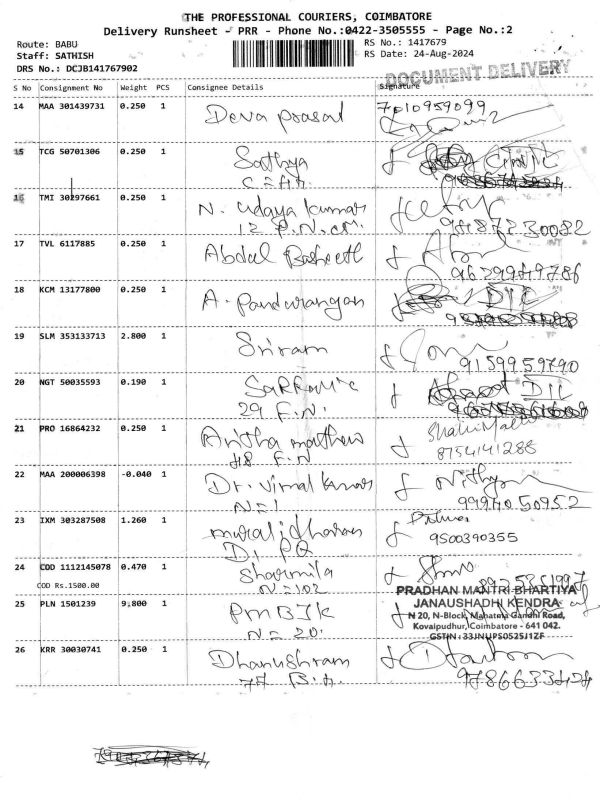 THE PROFESSIONAL COURIERS, COIMBATORE
Delivery Runsheet - PRR - Phone No.:0422-3505555 - Page No.:2
Route: BABU
Staff: SATHISH
DRS No.: DCJB141767902
RS No.: 1417679
RS Date: 24-Aug-2024
DOCUMENT DELIVERY
S No Consignment No Weight PCS Consignee Details Signature
14 MAA 301439731 0.250 1 Deva Prasad 7010959099
15 TCG 50701306 0.250 1 Sathya
16 TMI 30297661 0.250 1 N. Udaya Kumar
17 TVL 6117885 0.250 1 Abdul Basheeth
9629949786
18 KCM 13177800 0.250 1 A. Pandurangan DIL
19 SLM 353133713 2.800 1 Sriram
9159959790
20 NGT 50035593 0.190 1 DIL
29 F.N.
21 PRO 16864232 0.250 1 Anitha mathew
48 F.N 8754141288
22 MAA 200006398 -0.040 1 Dr. Vimal Kumar Nithya
9994050952
23 IXM 303287508 1.260 1 muralidharan
9500390355
24 COD 1112145078 0.470 1 Sharmila
COD Rs.1500.00 N=102
25 PLN 1501239 9,800 1 PMBJK
N=20.
PRADHAN MANTRI BHARTIYA
JANAUSHADHI KENDRA
N 20, N-Block, Mahatma Gandhi Road,
Kovaipudhur, Coimbatore - 641 042.
GSTIN : 33JNUPS0525J1ZF
26 KRR 30030741 0.250 1 Dhanushram
9786633424